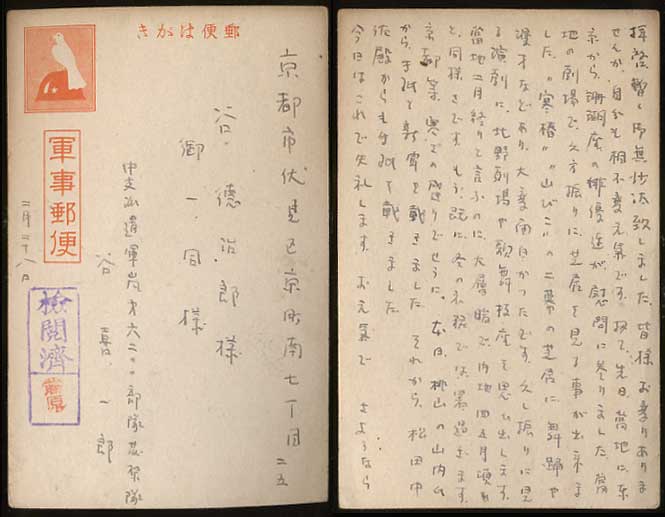 郵便はがき
軍事郵便
検閲済
二月二十八日
京都市伏見区京町南七丁目二五
谷 徳治郎様
御一同様
中支派遣軍
部隊
谷 喜一郎
拝啓 暫く御無沙汰致しました。皆様お変りありま
せんか、自分も相不変元気です。扨て、先日、当地に、東
京から、珊瑚座の俳優達が、慰問に参りました。当
地の劇場で、久方振りに、芝居を見る事が出来ま
した。"寒椿""山びこ"の二幕の芝居に舞踊や
漫才などあり、大変面白かったです。久し振りに見
る演劇に、北野劇場や歌舞伎座を思ひ出します。
当地二月終りと言ふのに、大層暖で、内地四五月頃
と、同様さです。もう既に、冬の衣務で
京都等、寒での盛りでせうに。本日、桃山の山内
から、手紙と新聞を戴きました それから、松田中
佐殿からも手紙を戴きました
今日はこれで失礼します。お元気で さようなら